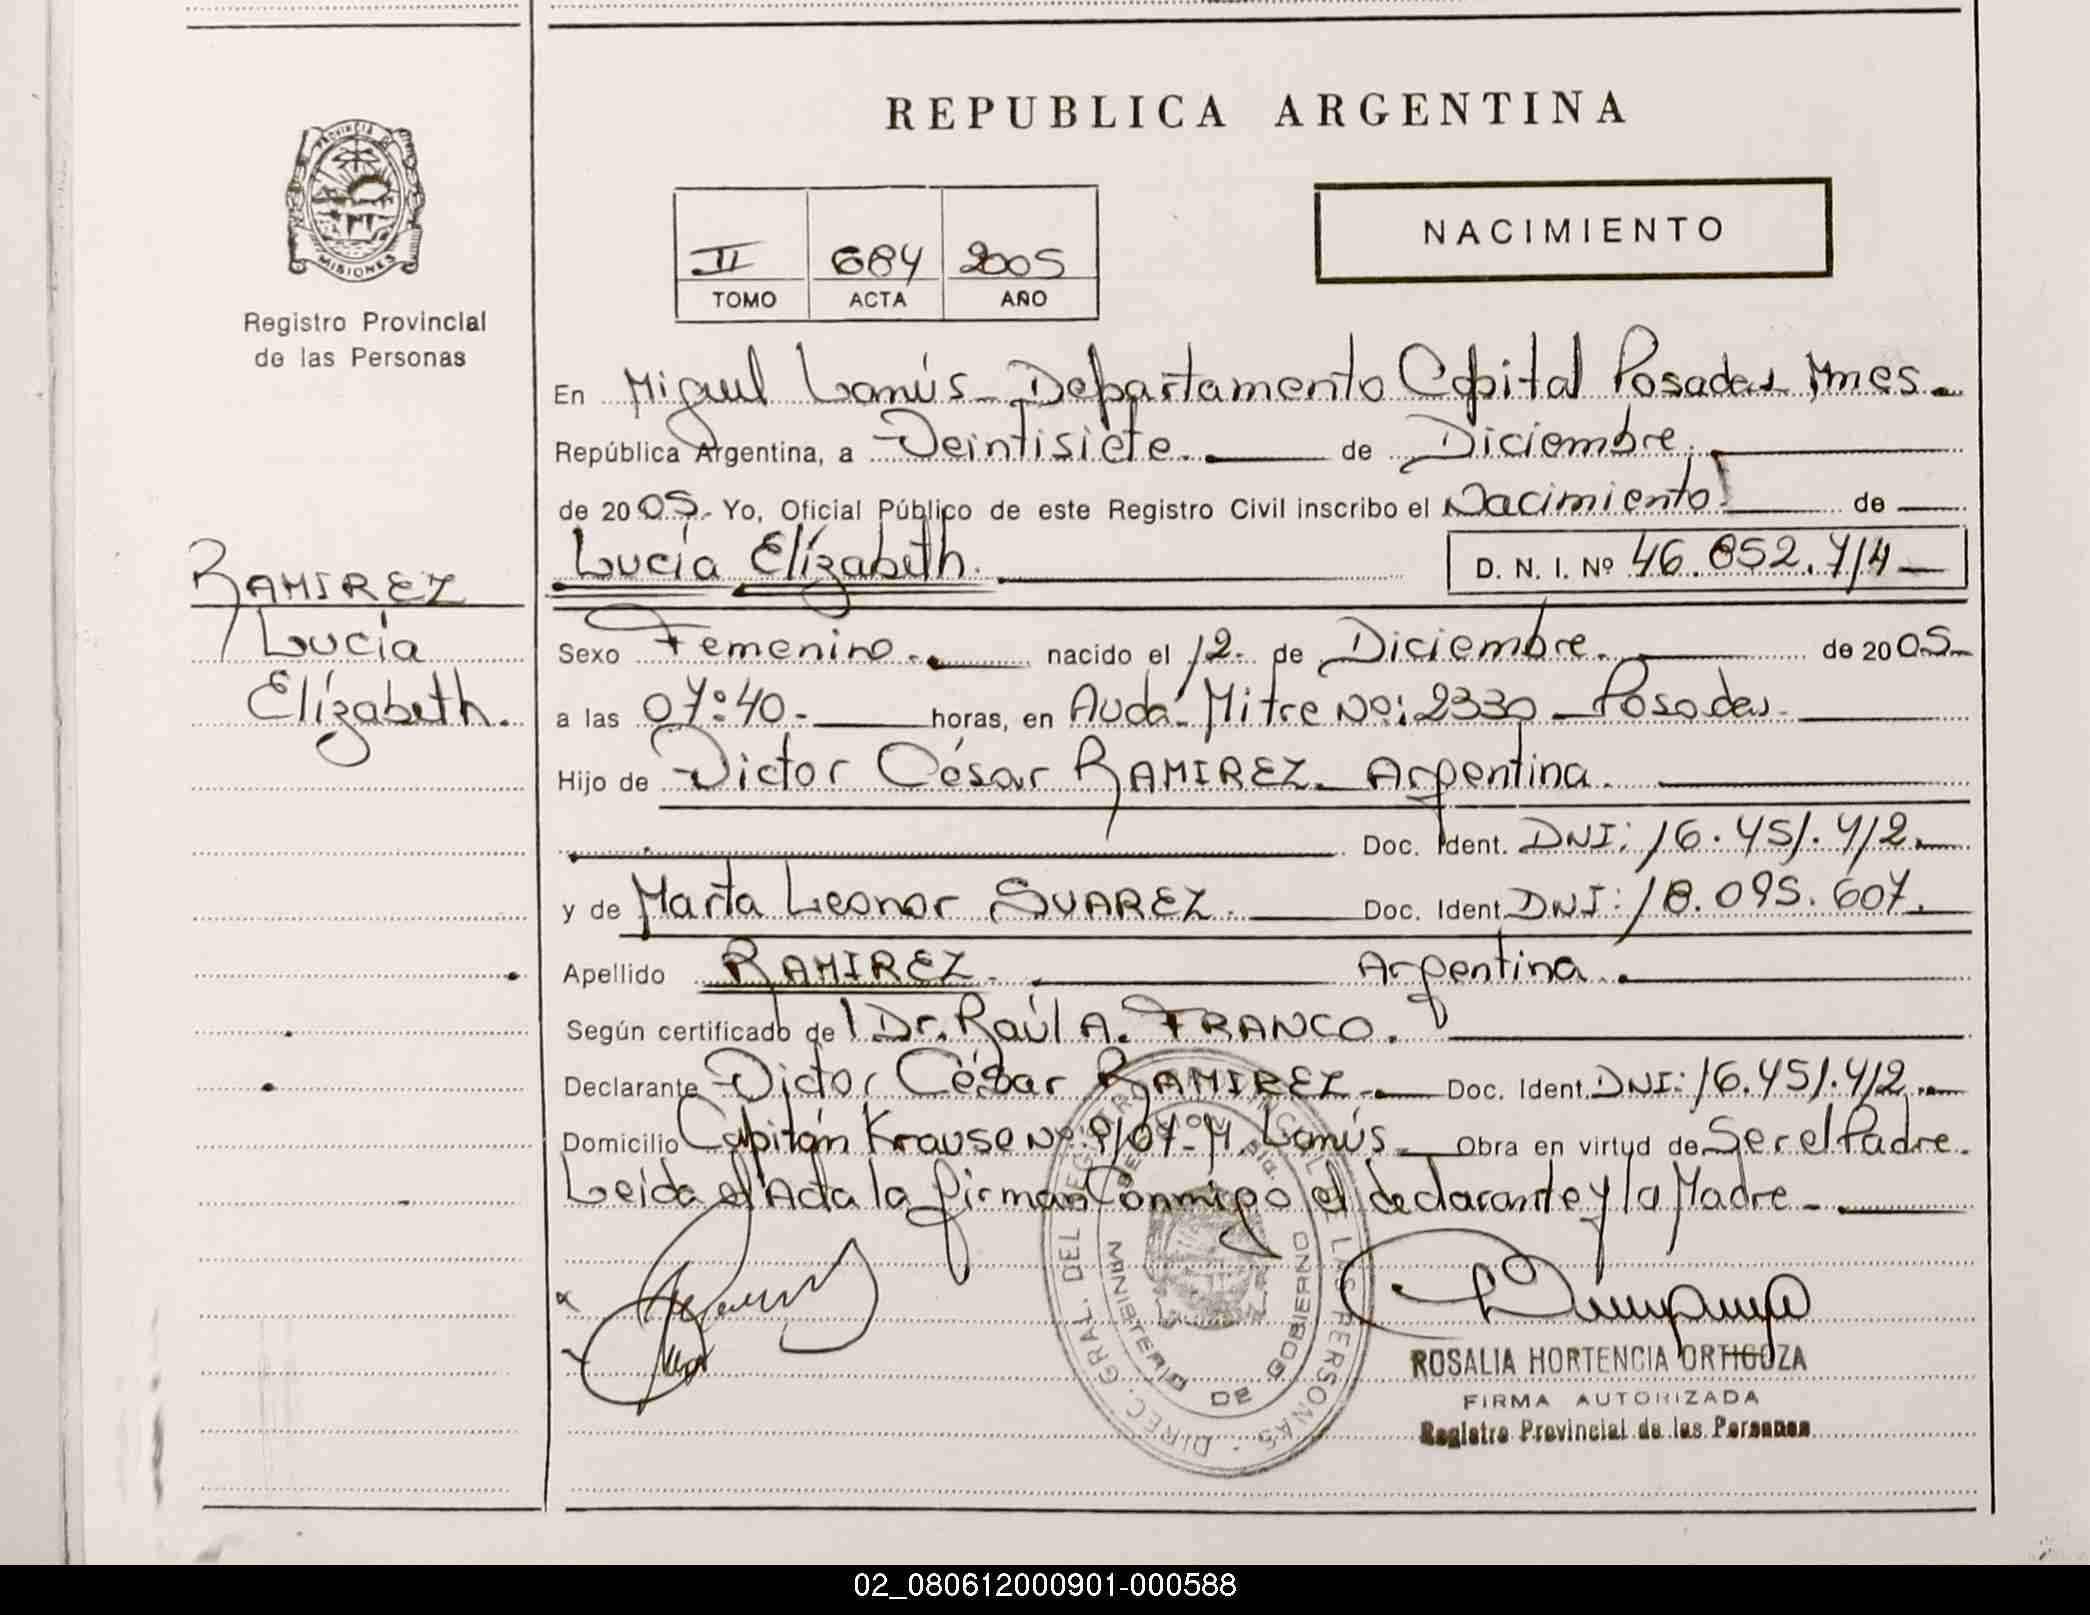 REPUBLICA ARGENTINA
PROVINCIA DE MISIONES
Registro Provincial
de las Personas
NACIMIENTO
II 684 2005
TOMO ACTA AÑO
En Miguel Lanús - Departamento Capital Posadas Mnes.
República Argentina, a Veintisiete. de Diciembre.
de 2005. Yo, Oficial Público de este Registro Civil inscribo el Nacimiento de
Lucía Elízabeth. D. N. I. Nº 46.852.714
RAMIREZ
Lucía
Elízabeth.
Sexo Femenino. nacido el 12. de Diciembre. de 2005
a las 07:40. horas, en Avda. Mitre Nº: 2330 - Posadas.
Hijo de Victor César RAMIREZ. Argentina.
Doc. Ident. DNI: 16.451.412.
y de Marta Leonor SUAREZ. Doc. Ident. DNI: 18.095.607.
Apellido RAMIREZ. Argentina.
Según certificado del Dr. Raúl A. FRANCO.
Declarante Victor César RAMIREZ. Doc. Ident. DNI: 16.451.412.
Domicilio Capitán Krause Nº: 9107 - M. Lanús. Obra en virtud de Ser el Padre.
Leida el Acta la firman Conmigo el declarante y la Madre.
DIREC. GRAL. DEL REGISTRO PROVINCIAL DE LAS PERSONAS
MINISTERIO DE GOBIERNO
ROSALIA HORTENCIA ORTIGOZA
FIRMA AUTORIZADA
Registro Provincial de las Personas
02_080612000901-000588